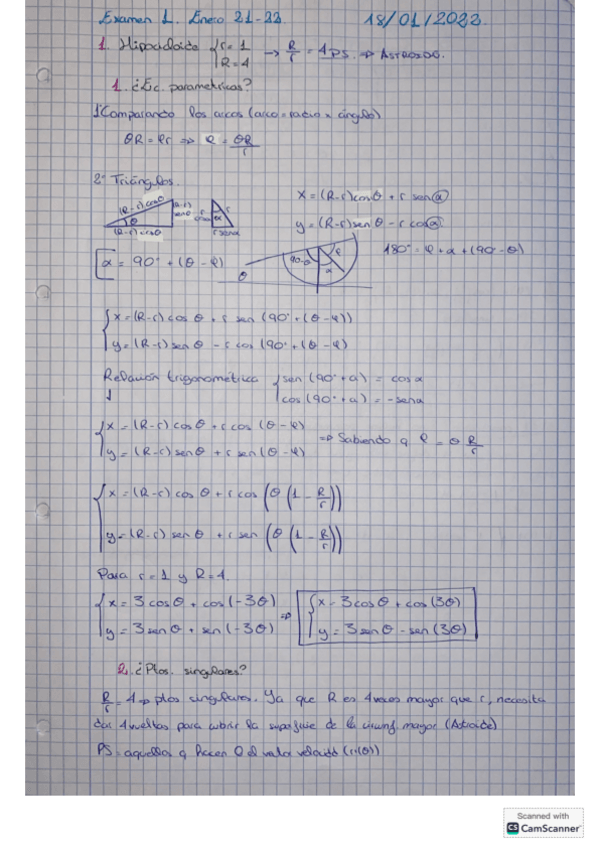 Examen 1. Enero 21-22 18/01/2022
1. Hipocicloide { r=1 R=4 → R/r = 4 PS. ⇒ ASTROIDE.
1. ¿Ec. parametricas?
1º Comparando los arcos (arco = radio x ángulo)
θR = φr ⇒ φ = θR/r
2º Triángulos.
(R-r)cosθ (R-r) senθ θ (R-r)cosθ r cosα r α r senα
x = (R-r)cosθ + r sen α
y = (R-r)senθ - r cos α
α = 90° + (θ - φ)
θ 90-θ φ α
180° = φ + α + (90 - θ)
{ x = (R-r) cos θ + r sen (90° + (θ - φ))
y = (R-r) sen θ - r cos (90° + (θ - φ)
Relación trigonométrica { sen (90° + α) = cos α
cos (90° + α) = - sen α
{ x = (R-r) cos θ + r cos (θ - φ)
y = (R-r) sen θ + r sen (θ - φ) ⇒ Sabiendo q φ = θ R/r
{ x = (R-r) cos θ + r cos (θ (1 - R/r))
y = (R-r) sen θ + r sen (θ (1 - R/r))
Para r = 1 y R = 4.
{ x = 3 cos θ + cos (-3θ) ⇒ { x = 3 cos θ + cos (3θ)
y = 3 sen θ + sen (-3θ) y = 3 sen θ - sen (3θ)
2. ¿Ptos. singulares?
R/r = 4 ⇒ ptos singulares. Ya que R es 4 veces mayor que r, necesita
dar 4 vueltas para cubrir la superficie de la circunf. mayor (Astroide)
PS = aquellos q hacen 0 el valor velocidad (r'(θ))
Scanned with
CS CamScanner